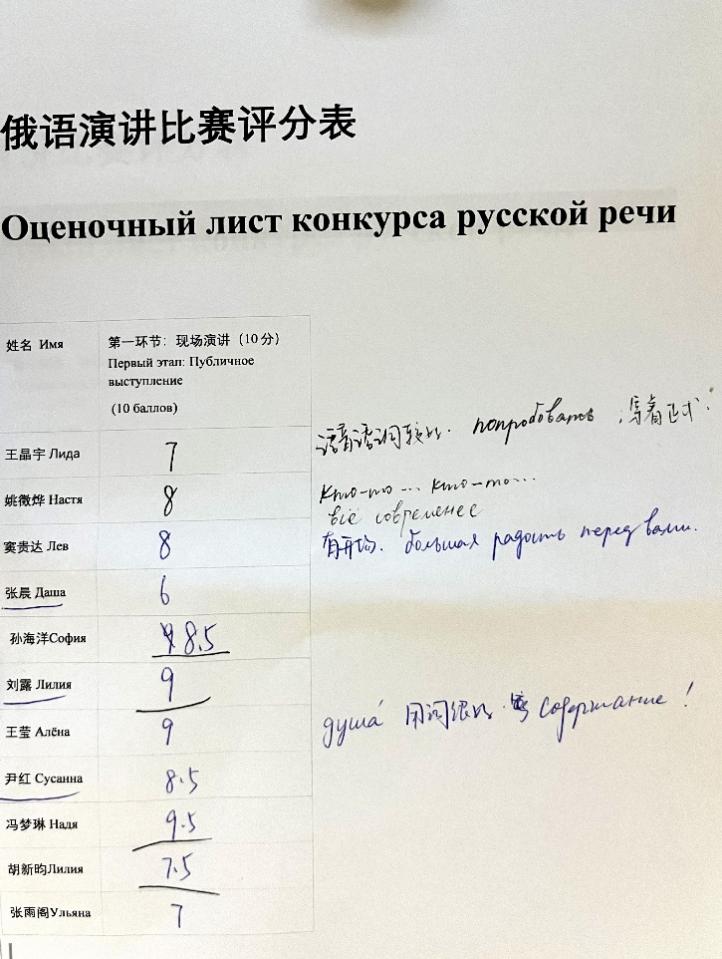 俄语演讲比赛评分表
Оценочный лист конкурса русской речи
姓名 Имя
第一环节：现场演讲（10分）
Первый этап: Публичное
выступление
(10 баллов)
王晶宇 Лида 7 попробовать
姚微烨 Настя 8 кто-то ... кто-то...
всё современнее
窦贵达 Лев 8 большая радость перед вами.
张晨 Даша 6
孙海洋София 8.5
刘露 Лилия 9
王莹 Алёна 9 душа́ 用词 содержание!
尹红 Сусанна 8.5
冯梦琳 Надя 9.5
胡新昀Лилия 7.5
张雨阁Ульяна 7